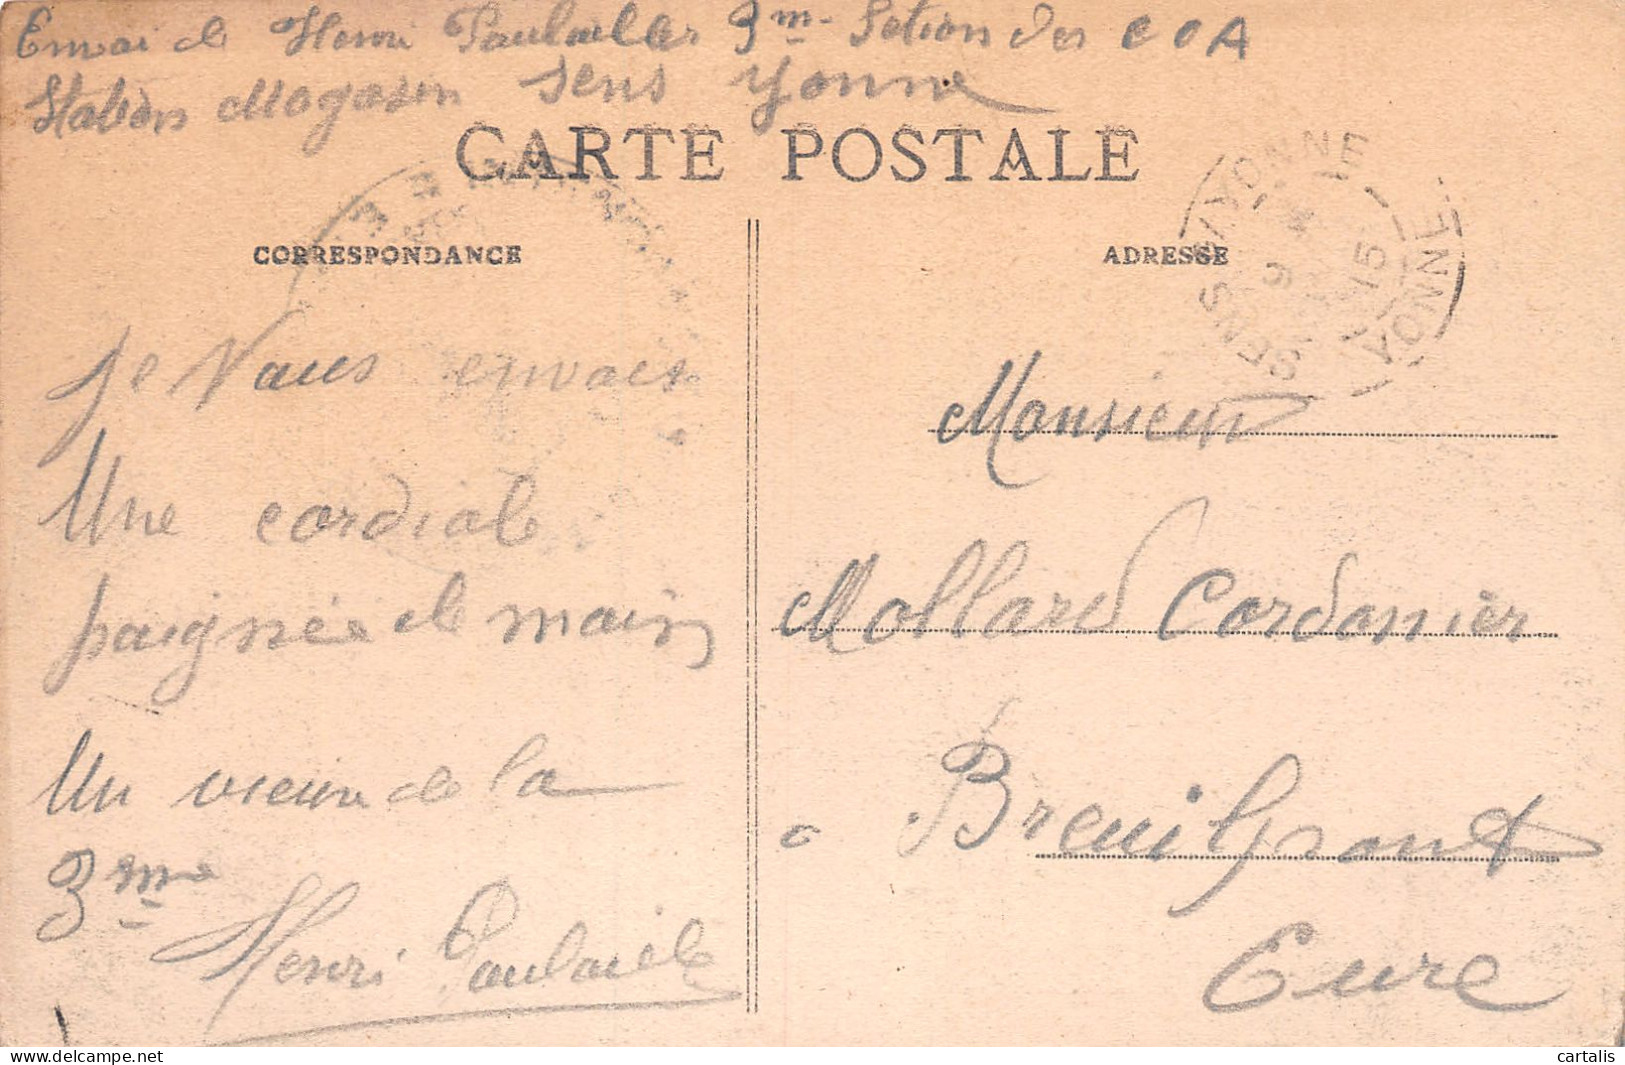 Envoi de Henri Paulaille 3m- Setion des C O A
Station Magasin Sens Yonne
CARTE POSTALE
CORRESPONDANCE
ADRESSE
SENS YONNE
15
YONNE
je Vous envois
Une cordiale
paignée de main
Un vieux de la
3me
Henri Paulaille
Monsieur
Mollard Cordonnier
a Breuilgrant
Eure
cartalis